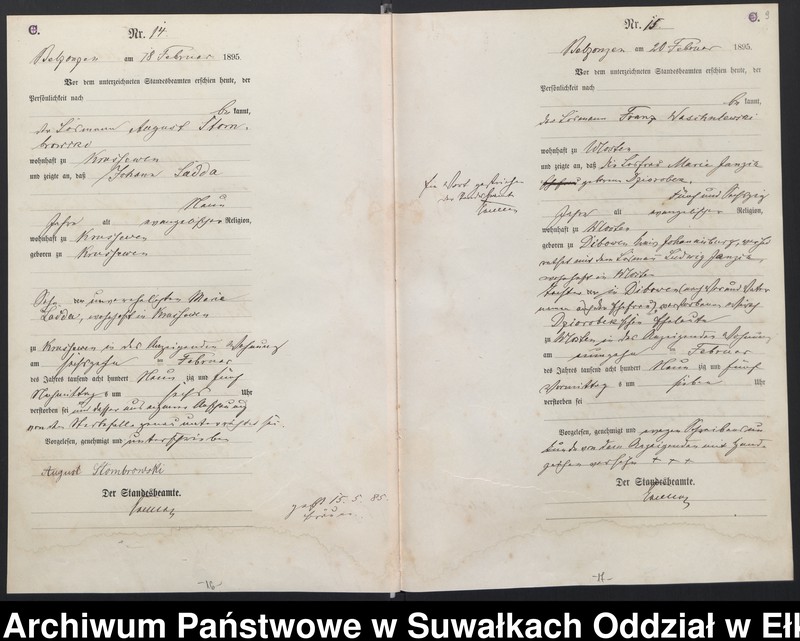 C.
Nr. 14.
Belzonzen am 18 Februar 1895.
Vor dem unterzeichneten Standesbeamten erschien heute, der
Persönlichkeit nach
be kannt,
der Losmann August Stom-
browski
wohnhaft zu Krusshewen
und zeigte an, daß Johann Sadda
Neun
Jahre alt evangelischer Religion,
wohnhaft zu Krusshewen
geboren zu Krusshewen
Sohn der unverehelichten Marie
Sadda, wohnhaft in Krusshewen
zu Krusshewen in des Anzeigenden Wohnung
am sechszehn ten Februar
des Jahres tausend acht hundert Neun zig und fünf
Nachmittag s um sechs Uhr
verstorben sei und dessen aus eigener
von dem Sterbefalle genau unterrichtet sei.
Vorgelesen, genehmigt und unterschrieben
August Stombrowski
Der Standesbeamte.
15. 5. 85.
-16-
C.
9
Nr. 15.
Belzonzen am 20 Februar 1895.
Vor dem unterzeichneten Standesbeamten erschien heute, der
Persönlichkeit nach
be kannt,
der Losmann Franz Waschulewski
wohnhaft zu Wlosten
und zeigte an, daß die Losfrau Marie Janzik
geborene Dziorobek
Ein Wort gestrichen
Der Standesbeamte
fünf und sechszig
Jahre alt evangelischer Religion,
wohnhaft zu Wlosten
geboren zu Dibowen Kreis Johannisburg, verhei
rathet mit dem Losmann Ludwig Janzik,
wohnhaft in Wlosten
Tochter der in Dibowen
verstorbenen
Dziorobek'schen Eheleute
zu Wlosten in des Anzeigenden Wohnung
am neunzehn ten Februar
des Jahres tausend acht hundert Neun zig und fünf
Vormittag s um sieben Uhr
verstorben sei
Vorgelesen, genehmigt und wegen Schreibensun
kunde von dem Anzeigenden mit Hand-
zeichen versehen + + +
Der Standesbeamte.
Archiwum Państwowe w Suwałkach Oddział w Eł